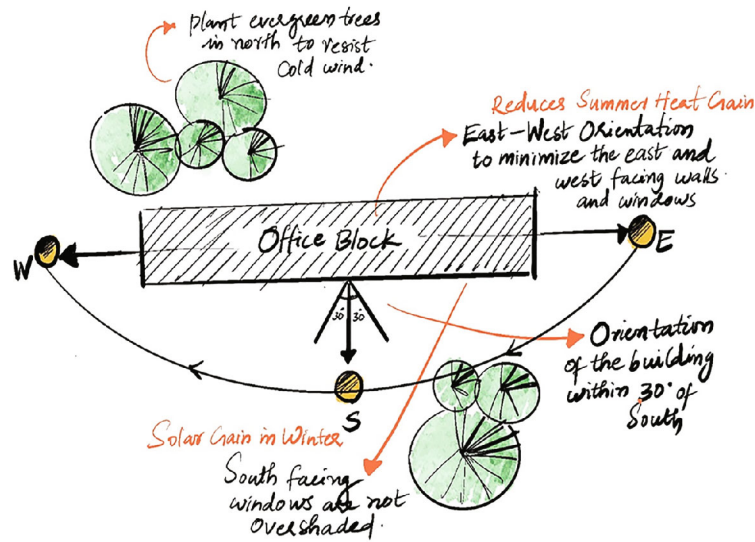 plant evergreen trees
in north to resist
Cold wind.
Reduces Summer Heat Gain
East-West Orientation
to minimize the east and
west facing walls
and windows
Office Block
W
E
30°
30°
S
Orientation
of the building
within 30° of
South
Solar Gain in Winter
South facing
windows are not
Overshaded.